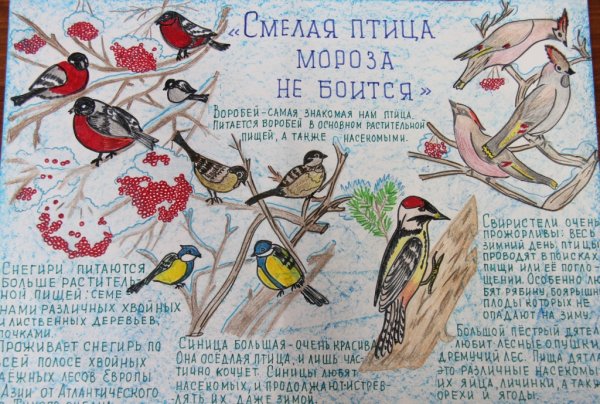 «Смелая птица
мороза
не боится»
Воробей-самая знакомая нам птица.
Питается воробей в основном растительной
пищей, а также насекомыми.
Снегири питаются
больше раститель-
ной пищей: семе
нами различных хвойных
и лиственных деревьев,
почками.
Проживает снегирь по
всей полосе хвойных
лесов Европы
Азии от Атлантического
Синица большая-очень красива.
Она оседлая птица, и лишь час-
тично кочует. Синицы любят
насекомых, и продолжают истреб-
лять их даже зимой.
Свиристели очень
прожорливы: весь
зимний день птицы
проводят в поисках
пищи или её погло-
щении. Особенно лю
бят рябину, боярышн
плоды которых не
опадают на зиму.
Большой пёстрый дяте
любит лесные опушки,
дремучий лес. Пища дятла
это различные насекомые
их яйца, личинки, а так
орехи и ягоды.